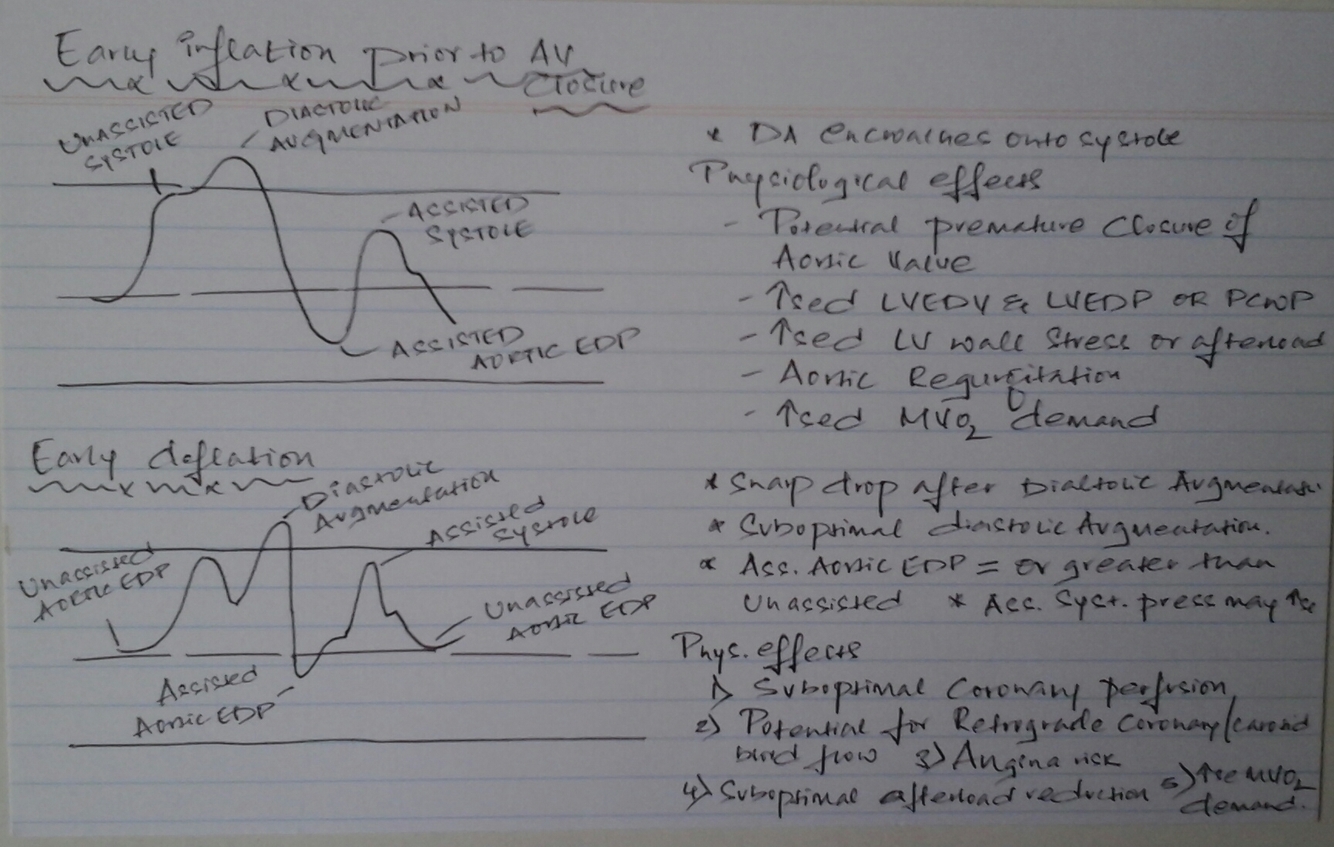 Early inflation prior to AV
closure
UNASSISTED
SYSTOLE
DIASTOLIC
AUGMENTATION
ASSISTED
SYSTOLE
ASSISTED
AORTIC EDP
* DA encroaches onto systole
Physiological effects
- Potential premature closure of
Aortic Valve
- ↑sed LVEDV & LVEDP OR PCWP
- ↑sed LV wall stress or afterload
- Aortic Regurgitation
- ↑sed MVO₂ demand
Early deflation
Unassissed
AORTIC EDP
Diastolic
Augmentation
Assissed
Systole
Unassissed
Aortic EDP
Assissed
Aortic EDP
* Sharp drop after Diastolic Augmentation
* Suboptimal diastolic Augmentation.
* Ass. Aortic EDP = or greater than
Unassisted * Ass. Syst. press may ↑se
Phys. effects
1) Suboptimal Coronary perfusion
2) Potential for Retrograde coronary/carotid
blood flow 3) Angina risk
4) Suboptimal afterload reduction 5) ↑se MVO₂
demand.